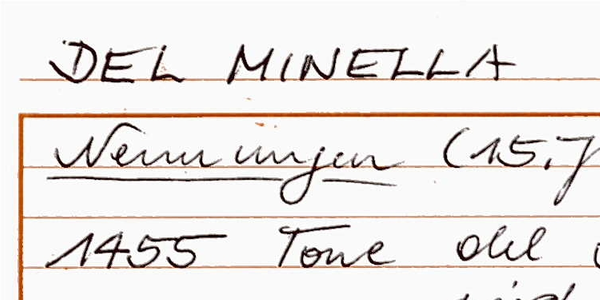 DEL MINELLA
Nennungen (15.J
1455 Tone del